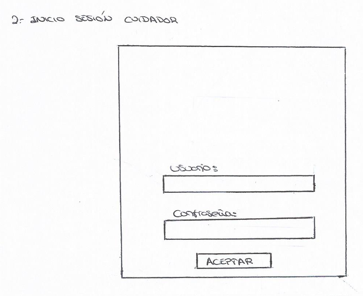 2- INICIO SESIÓN CUIDADOR
USUARIO:
CONTRASEÑA:
ACEPTAR